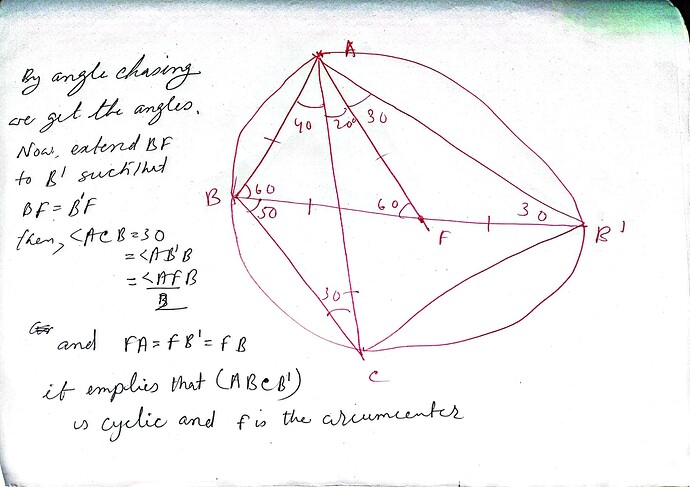 By angle chasing
we get the angles.
Now, extend BF
to B' such that
BF = B'F
then, <ACB = 30
= <AB'B
= <AFB
2
and FA = FB' = FB
it emplies that (ABCB')
is cyclic and F is the circumcenter
A
40
20
30
B
60
50
60
F
30
B'
30
C